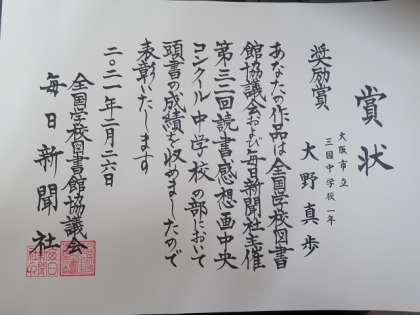 賞状
奨励賞
大阪市立
三国中学校一年
大野真歩
あなたの作品は全国学校図書
館協議会および毎日新聞社主催
第三二回読書感想画中央
コンクール中学校の部において
頭書の成績を収めましたので
表彰いたします
二〇二一年二月二六日
全国学校図書館協議会
毎日新聞社